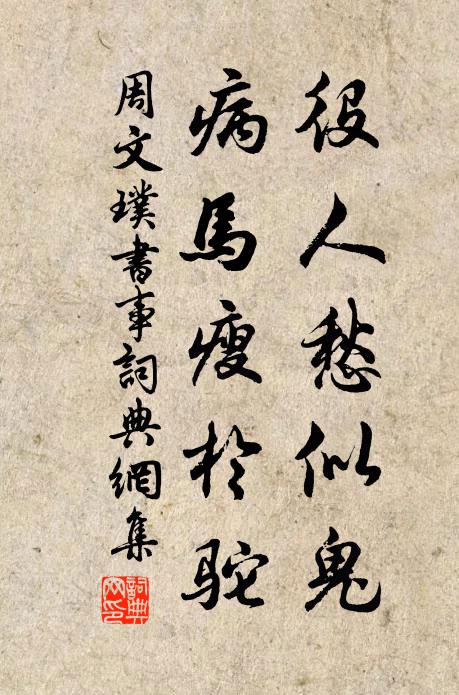 役人愁似鬼
病馬瘦於駝
周文璞書事詞典網集
詞典網印